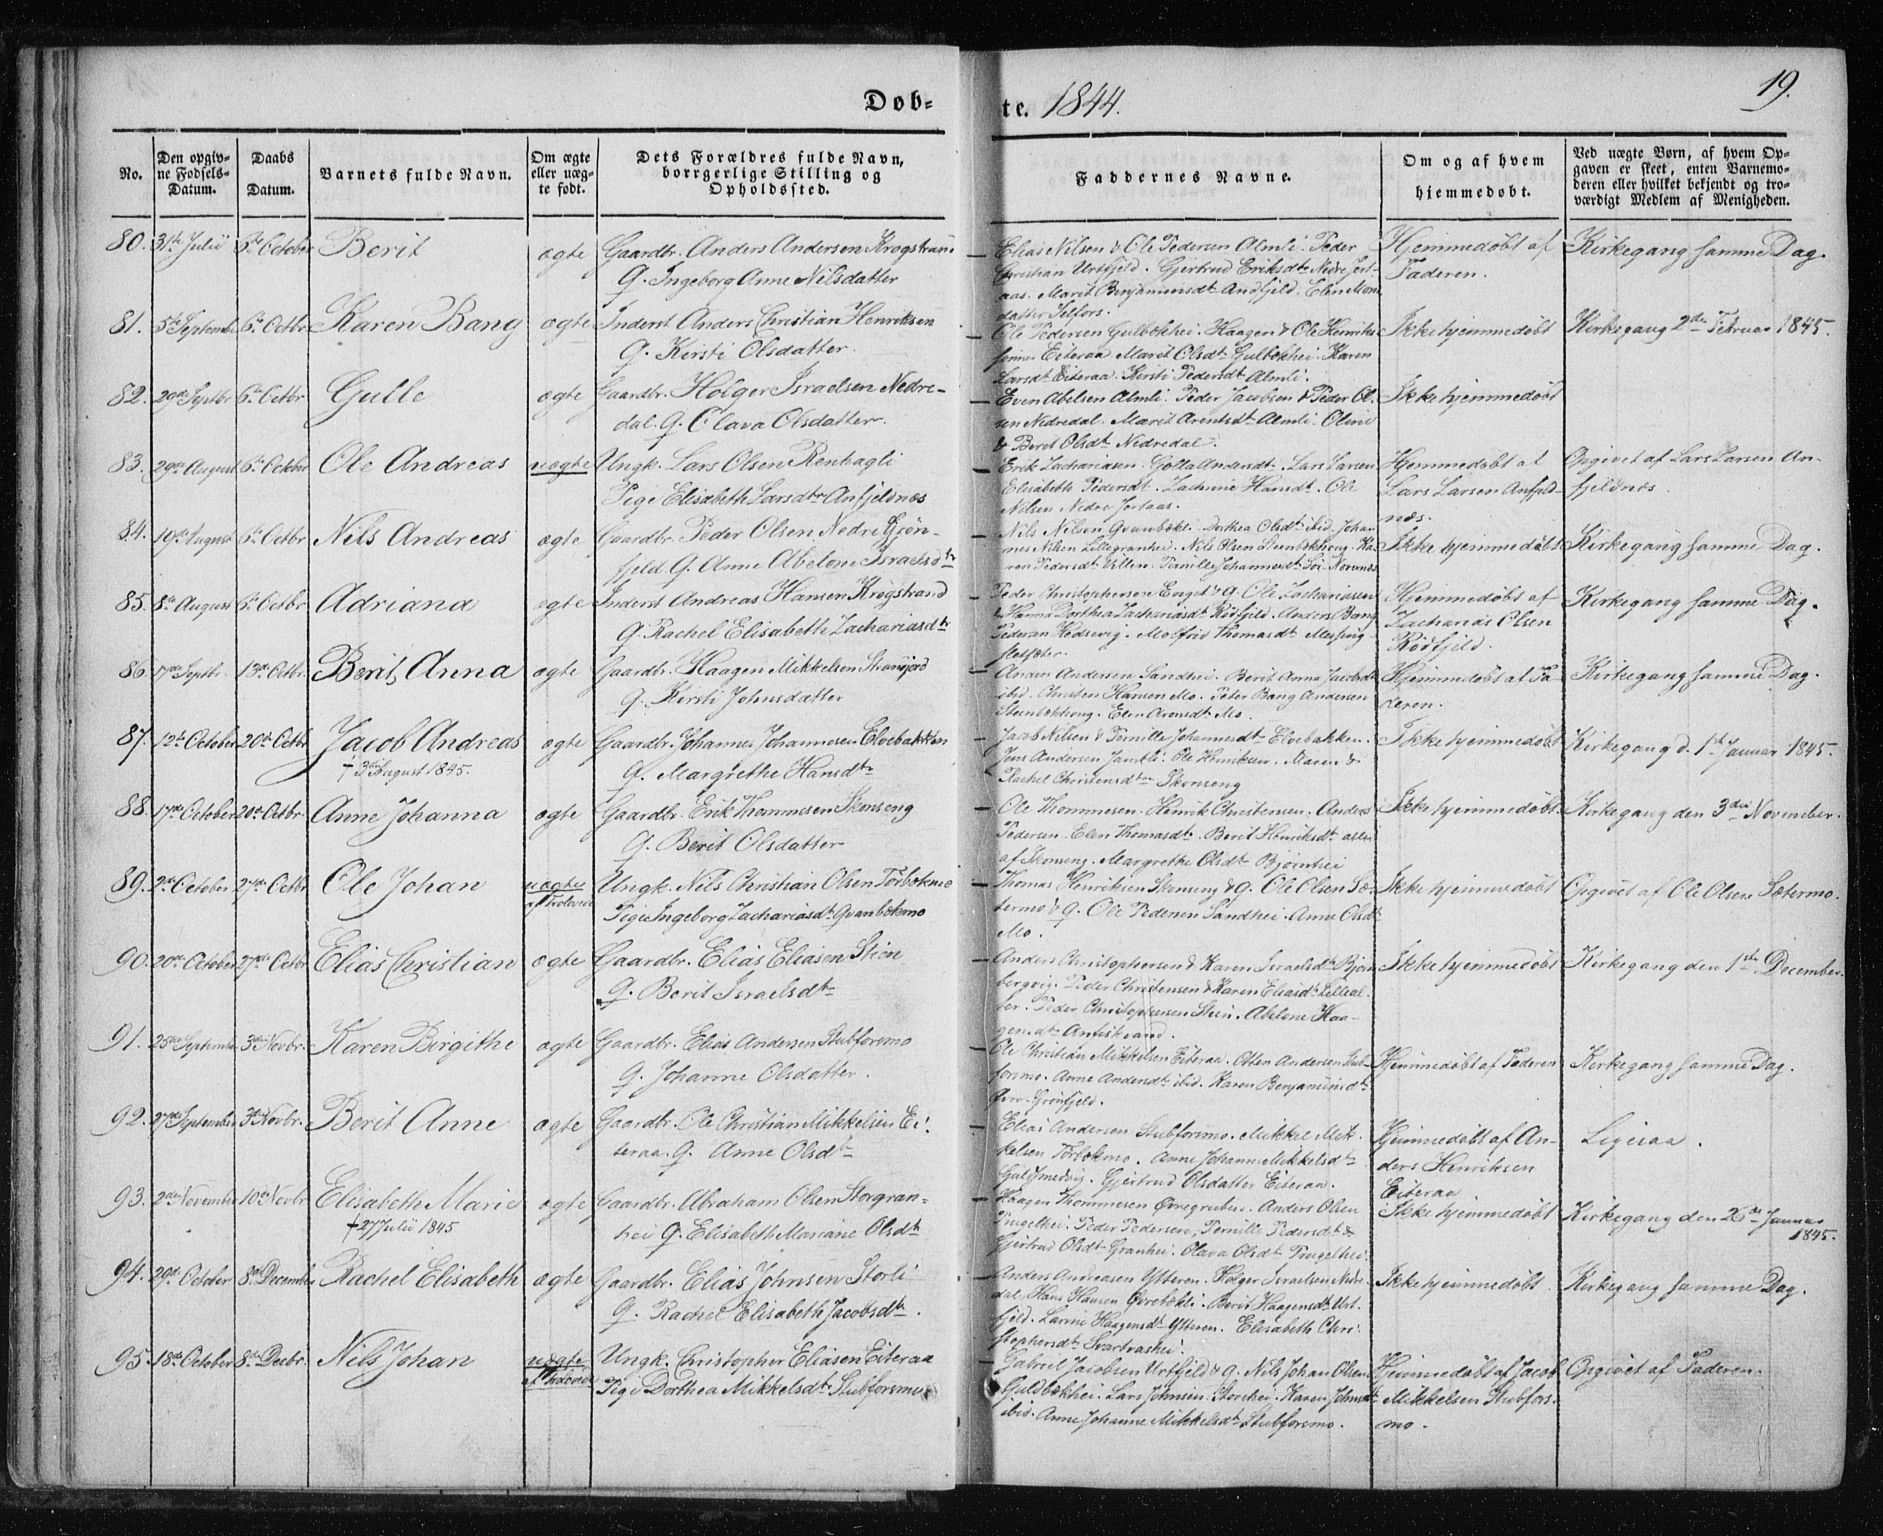 Døb-
te. 1844.
19.
No.
Den opgiv-
ne Fødsels-
Datum.
Daabs
Datum.
Barnets fulde Navn.
Om ægte
eller uæg-
te født.
Dets Forældres fulde Navn,
borrgerlige Stilling og
Opholdssted.
Faddernes Navne.
Om og af hvem
hjemmedøbt.
Ved uægte Børn, af hvem Op-
gaven er skeet, enten Barnemo-
deren eller hvilket bekjendt og tro-
værdigt Medlem af Menigheden.
80. 31te Julii 6te October Berit ægte Gaardbr. Anders Andersen Krogstrand
Q. Ingeborg Anne Nilsdatter
Elias Nilsen & Ole Pedersen Almli. Peder
Christian Urtfjeld. Gjertrud Eriksdtr Nedre
aas. Marit Benjaminsdt Andfjeld. Elen Mons
datter Selfors.
Hjemmedøbt af
Faderen.
Kirkegang samme Dag.
81. 5te September 6te Octbr. Karen Bang ægte Inderst Anders Christian Henriksen
Q. Kirsti Olsdatter.
Ole Pedersen Gulbækhei. Haagen & Ole Henrik
sønner Eiteraa Marit Olsdt Gulbækhei. Karen
Larsdt Eiteraa. Kirsti Pedersdt Almli.
Ikke hjemmedøbt
Kirkegang 2den Februar 1845.
82. 29de Septbr 6te Octbr. Gulle ægte Gaardbr. Holger Israelsen Nedre-
dal. Q. Olava Olsdatter.
Even Abelsen Almli. Peder Jacobsen & Peder Ol-
sen Nedredal. Marit Arentsdt Almli. Oline
& Berit Olsdt Nedredal.
Ikke hjemmedøbt
83. 29de August 6te October Ole Andreas uægte Ungk. Lars Olsen Renhagli
Pige Elisabeth Larsdtr Anfjeldnæs
Erik Zachariasen. Andersdt. Lars Larsen
Elisabeth Pedersdt. Hansdt. Ole
Nilsen Nedre
Hjemmedøbt af
Lars Larsen Anfjeld-
næs.
Opgivet af Lars Larsen An-
fjeldnæs.
84. 19de August 6te Octbr Nils Andreas ægte Gaardbr. Peder Olsen Nedre Grøn-
fjeld. Q. Anne Abelone Israelsdtr
Nils Nilsen Dorthea Olsdt ibid. Johan
nes Nilsen Lillegranhei. Nils Olsen Steenbækhoug. Ka-
ren Pedersdt Villen. Pernille Johannesdt
Ikke hjemmedøbt
Kirkegang samme Dag.
85. 8de August 6te Octbr. Adriana ægte Inderst Andreas Hansen Krogstrand
Q. Rachel Elisabeth Zachariasdtr
Peder Christophersen Enget & Q. Ole Zachariasen
& Hanna Dorthea Zachariasdt Rødfjeld. Anders Bang
Thomasdt Messing-
sletsæter.
Hjemmedøbt af
Zacharias Olsen
Rødfjeld.
Kirkegang samme Dag.
86. 17de Septbr. 13de Octbr. Berit Anna ægte Gaardbr. Haagen Mikkelsen Strandjord
Q. Kirsti Johnsdatter
Anders Andersen Sandhei. Berit Anna Jacobsdt
ibid. Christen Hansen Mo. Peter Bang Andersen
Steenbækhoug. Elen Arensdt Mo.
Hjemmedøbt af Fa-
deren.
Kirkegang samme Dag.
87. 12te October 20de Octbr Jacob Andreas ægte Gaardbr. Johannes Johannesen Elvebakken
† 3die August 1845.
Q. Margrethe Hansdtr
Jacob Nilsen & Pernille Johannesdt Elvebakken.
Jens Andersen Jamtli. Ole Henriksen, Maren &
Rachel Christensdtr Skonseng
Ikke hjemmedøbt
Kirkegang d. 1ste Januar 1845.
88. 17de October 20de Octbr. Anne Johanna ægte Gaardbr. Erik Thommesen Skonseng
Q. Berit Olsdatter
Ole Thommesen. Henrik Christensen. Anders
Pedersen. Elen Thomasdt. Berit Henriksdt alle
af Skonseng. Margrethe Olsdt Bjørnhei
Ikke hjemmedøbt.
Kirkegang den 3die November.
89. 2de October 27de Octbr Ole Johan uægte Ungk. Nils Christian Olsen Torbækmo
af Trolovede
Pige Ingeborg Zachariasdt Qvanbækmo
Thomas Henriksen Skonseng & Q. Ole Olsen Sæ-
termo & Q. Ole Pedersen Sandhei. Anne Olsdt
Mo.
Ikke hjemmedøbt
Opgivet af Ole Olsen Sætermo.
90. 20de October 27de Octbr Elias Christian ægte Gaardbr. Elias Eliasen Stien
Q. Berit Israelsdtr
Anders Christophersen & Karen Israelsdt Bjørn
bergvig. Peder Christensen & Karen Eliasdt Lilleal-
ter. Peder Christophersen Stien. Abelone Haa-
gensdt
Ikke hjemmedøbt
Kirkegang den 1ste December.
91. 25de September 3die Novbr. Karen Birgithe ægte Gaardbr. Elias Andersen Stubforsmo
Q. Johanne Olsdatter.
Ole Christian Mikkelsen Eiteraa. Otten Andersen Stub-
forsmo. Anne Andersdt ibid. Karen Benjaminsdt
Grønfjeld.
Hjemmedøbt af Faderen
Kirkegang samme Dag.
92. 27de September 3die Novbr. Berit Anne ægte Gaardbr. Ole Christian Mikkelsen Ei-
teraa. Q. Anne Olsdtr
Elias Andersen Stubforsmo. Mikkel Mik-
kelsen Torbækmo. Anne Johanne Mikkelsdt
Guldsmedvig. Gjertrud Olsdatter Eiteraa.
Hjemmedøbt af An-
ders Henriksen
Eiteraa
Ligesaa.
93. 2den November 10de Novbr. Elisabeth Marie ægte Gaardbr. Abraham Olsen Storgran-
† 27 Julii 1845
hei Q. Elisabeth Mariane Olsdtr
Haagen Thommesen Ørnegruben. Anders Olsen
Tingelhei. Peder Pedersen, Pernille Pedersdt &
Gjertrud Olsdt Granhei. Olava Olsdt Tingelhei.
Ikke hjemmedøbt
Kirkegang den 26de Januar
1845.
94. 29de October 8de December Rachel Elisabeth ægte Gaardbr. Elias Johnsen Storli
Q. Rachel Elisabeth Jacobsdtr.
Anders Andreasen Ytteren. Holger Israelsen Nedre-
dal, Hans Hansen Øverbækli. Berit Haagensdt Urt-
fjeld. Larine Haagensdt Ytteren. Elisabeth Chri-
stophersdt Svartvashei.
Ikke hjemmedøbt.
Kirkegang samme Dag.
95. 18de October 8de Decbr. Nils Johan uægte Ungk. Christopher Eliasen Eiteraa
af Trolovede
Pige Dorthea Mikkelsdt Stubforsmo
Gabriel Jacobsen Urtfjeld & Q. Nils Johan Olsen
Guldbækhei. Lars Johnsen Storhei. Karen Johnsdt
ibid. Anne Johanne Mikkelsdt Stubforsmo.
Hjemmedøbt af Jacob
Mikkelsen Stubfors-
mo.
Opgivet af Faderen.